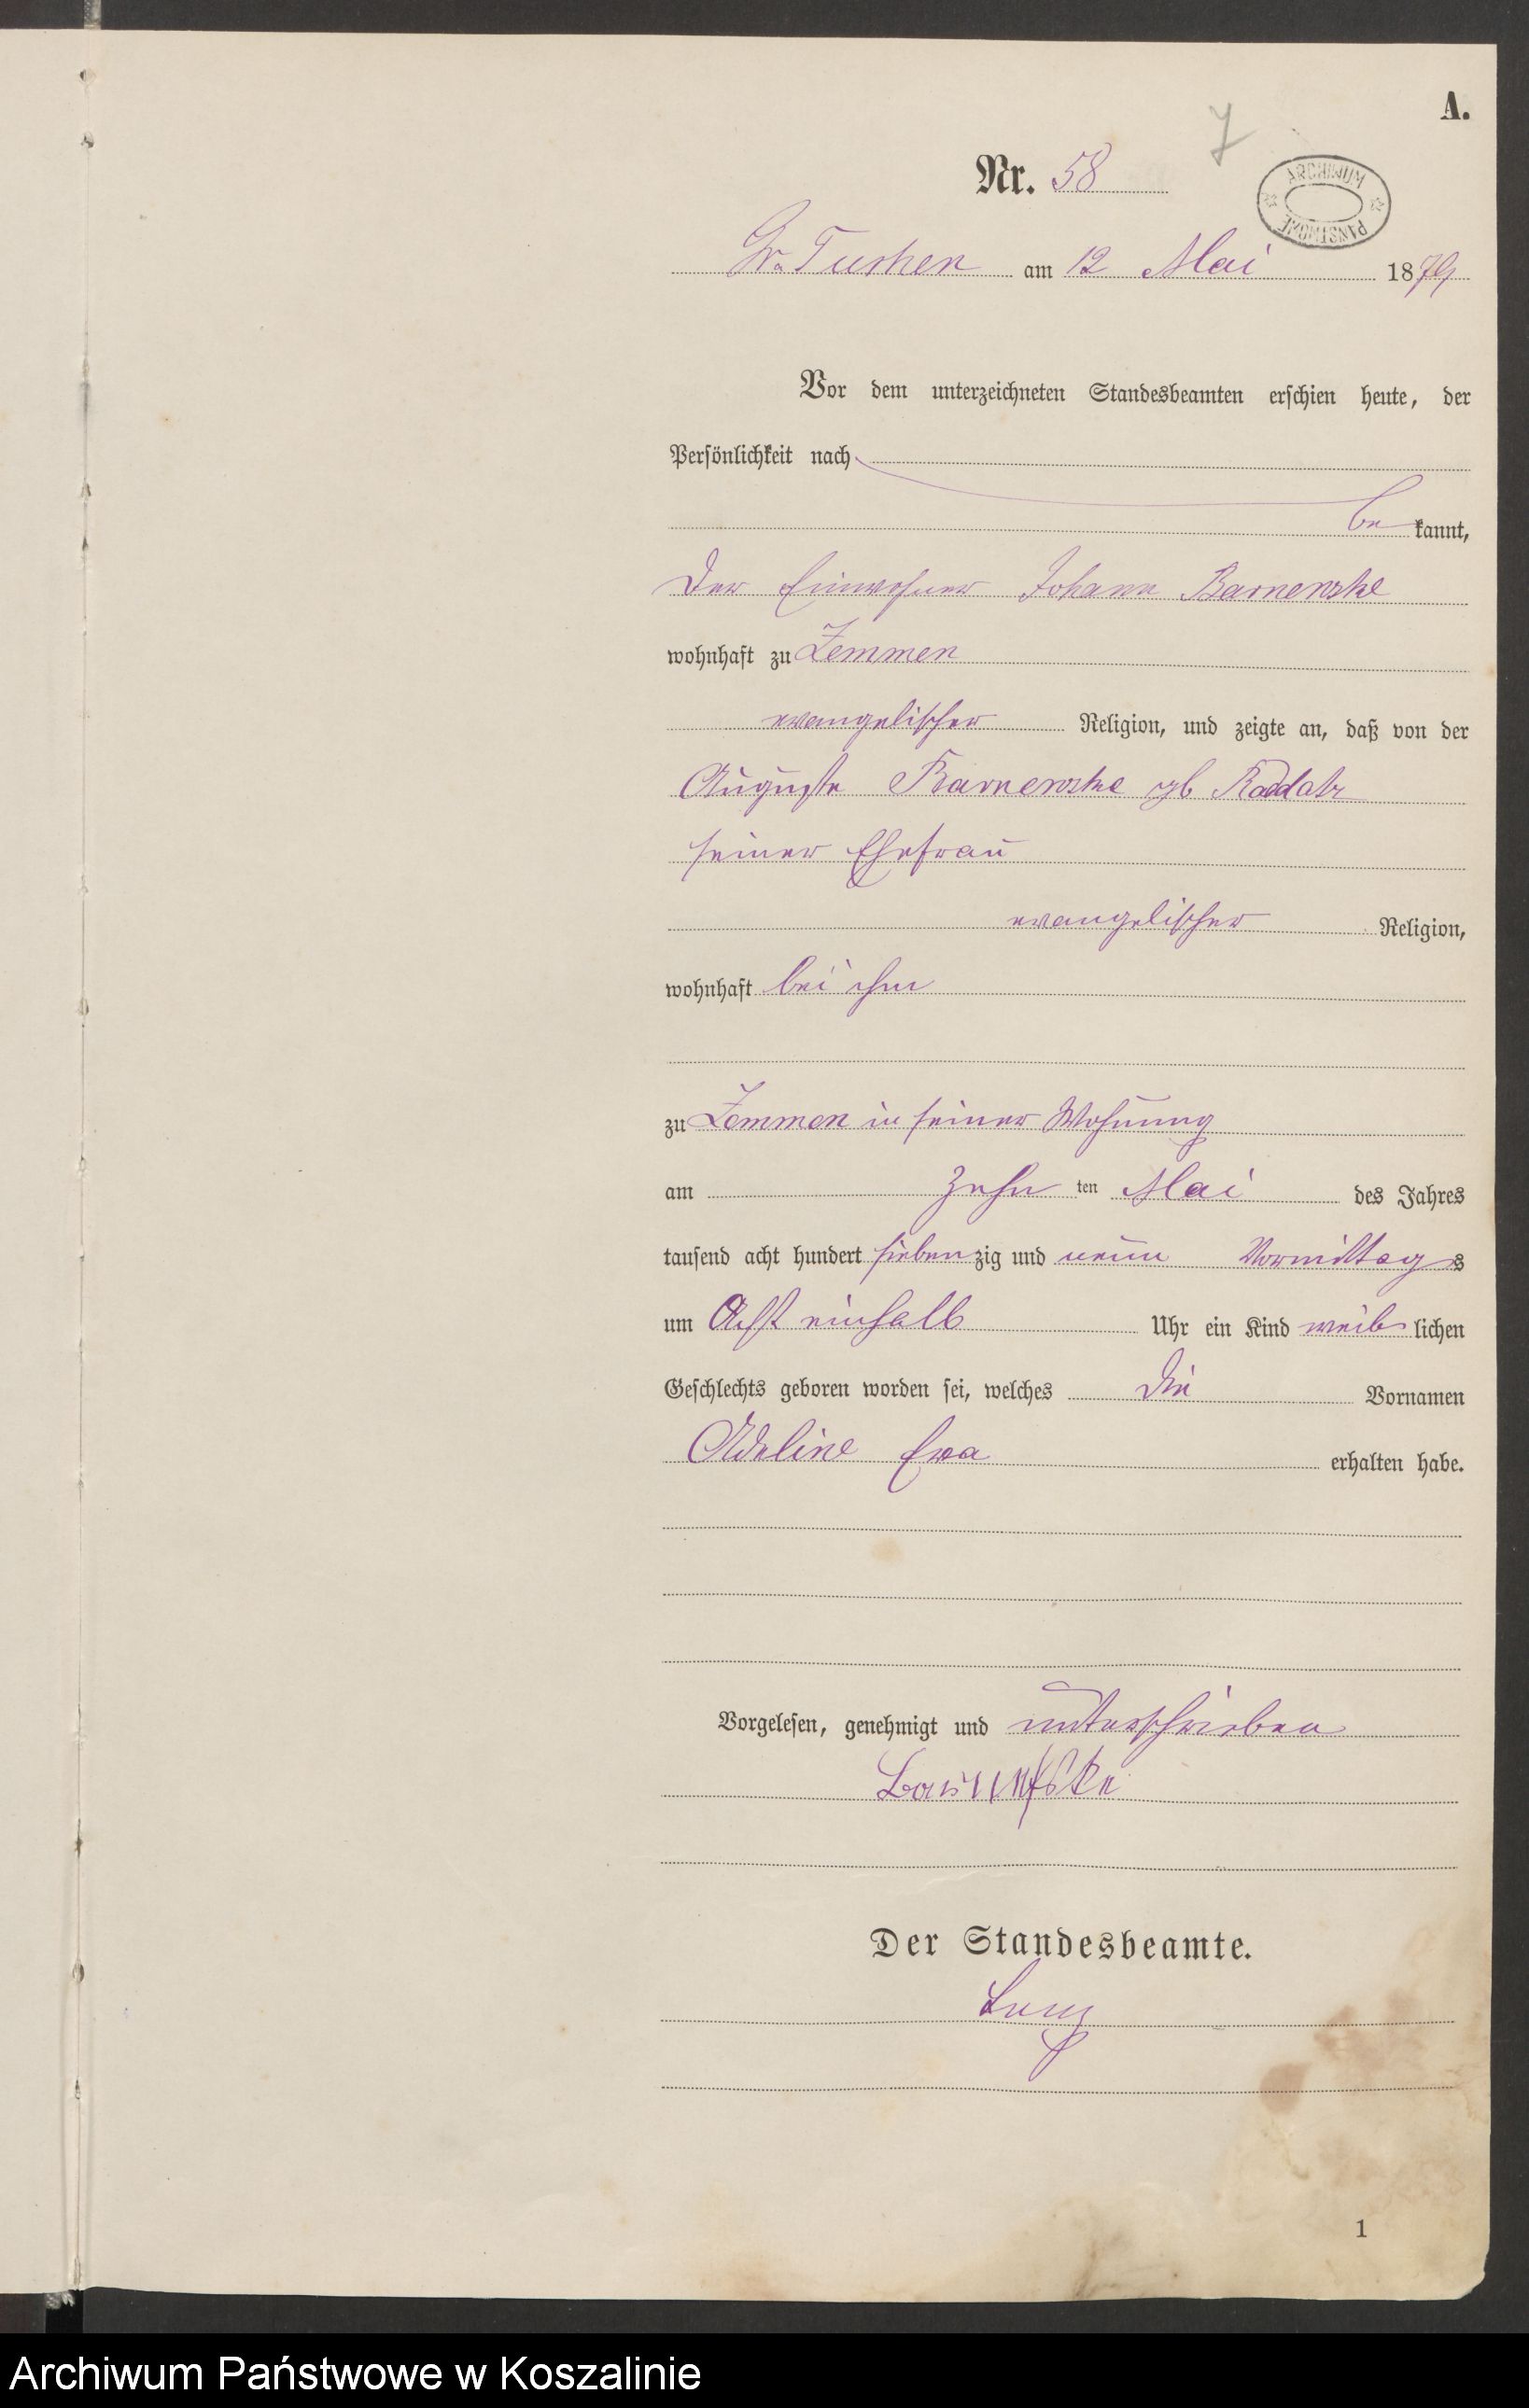 A.
7
Nr. 58
ARCHIWUM PAŃSTWOWE
Gr. Tuchen am 12 Mai 1879
Vor dem unterzeichneten Standesbeamten erschien heute, der
Persönlichkeit nach
be kannt,
Der Einwohner Johann Barnewske
wohnhaft zu Zemmen
evangelischer Religion, und zeigte an, daß von der
Auguste Barnewske gb Raddatz
seiner Ehefrau
evangelischer Religion,
wohnhaft bei ihm
zu Zemmen in seiner Wohnung
am zehn ten Mai des Jahres
tausend acht hundert siebenzig und neun Vormittags
um Acht einhalb Uhr ein Kind weiblichen
Geschlechts geboren worden sei, welches die Vornamen
Adeline Ewa erhalten habe.
Vorgelesen, genehmigt und unterschrieben
Der Standesbeamte.
1
Archiwum Państwowe w Koszalinie